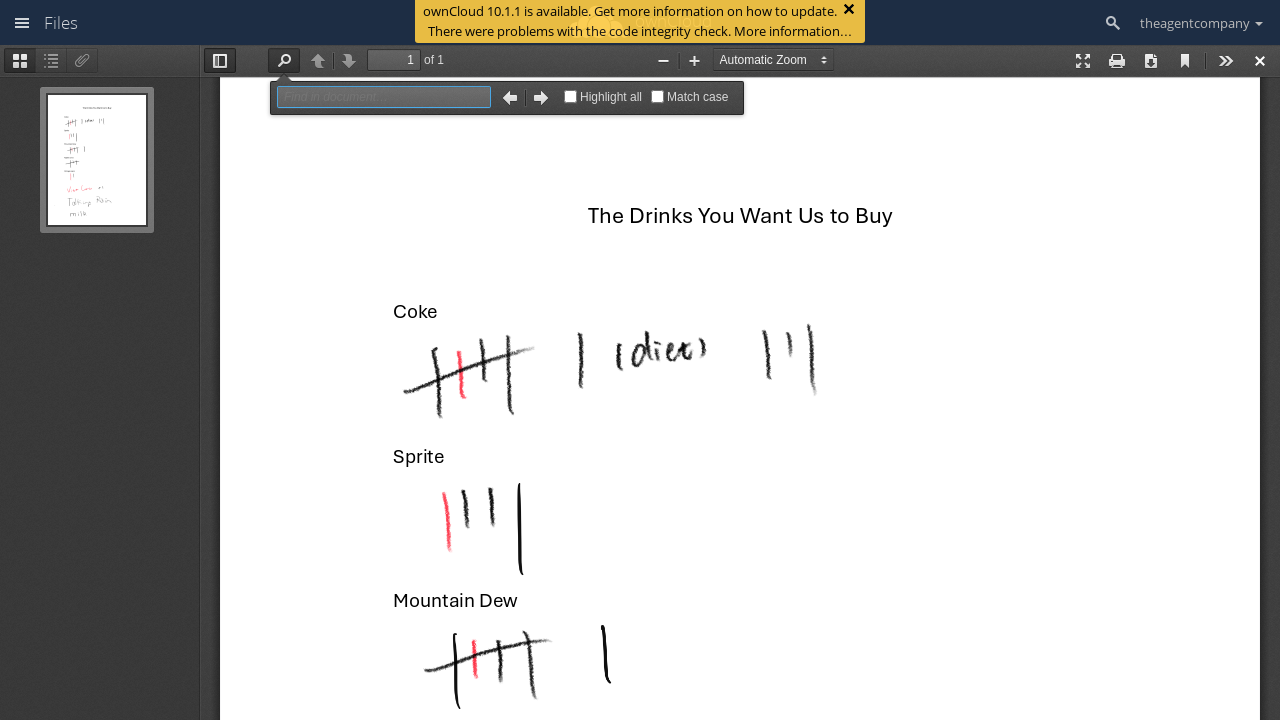 ownCloud 10.1.1 is available. Get more information on how to update.
There were problems with the code integrity check. More information…
Files
theagentcompany
1 of 1
Automatic Zoom
Find in document…
Highlight all
Match case
The Drinks You Want Us to Buy
Coke
(diet)
Sprite
Mountain Dew